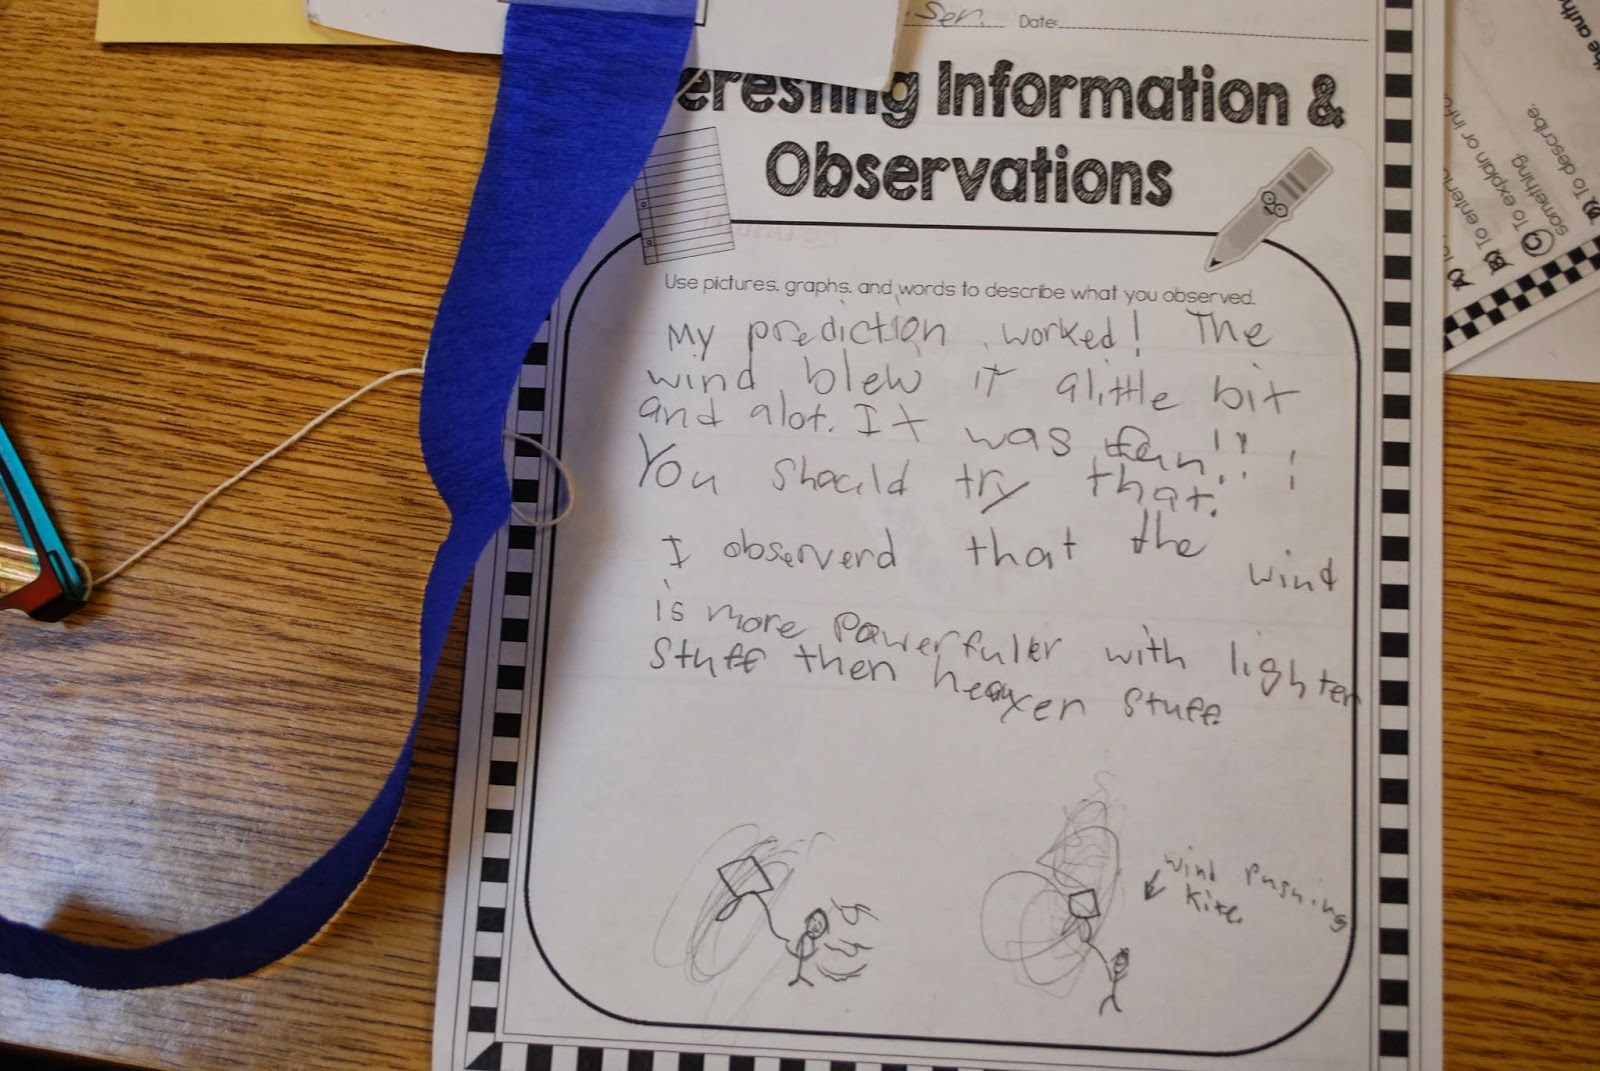 Sen. Date:
eresting Information &
Observations
Use pictures, graphs, and words to describe what you observed.
My prediction worked! The
wind blew it alittle bit
and alot. It was fun!!!
You should try that.
I observerd that the wind
is more powerfuler with lighter
stuff then heavyer stuff.
wind pushing
kite.
the autho
to enterta
To explain or info
something.
To describe.